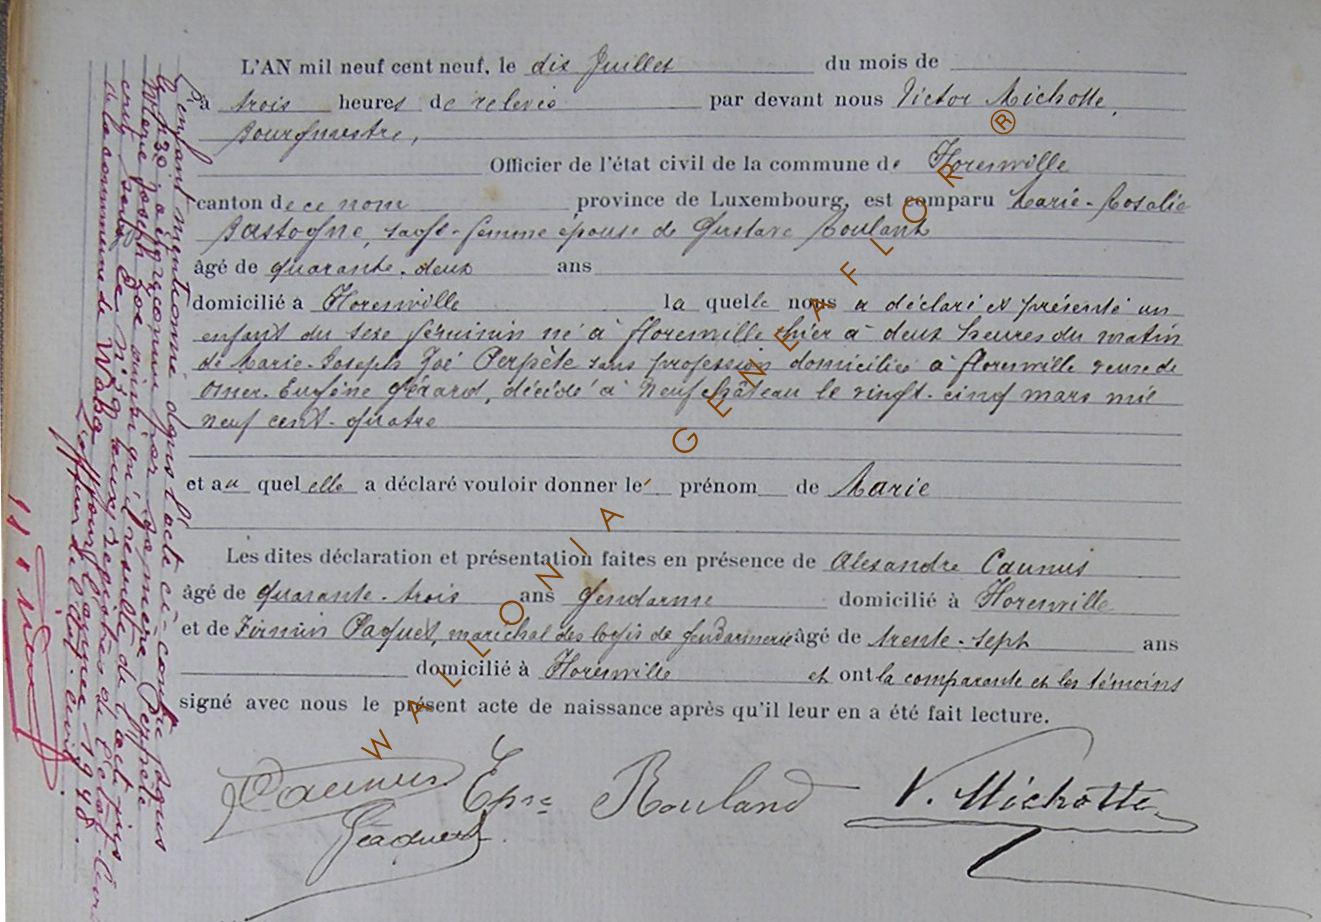 L'AN mil neuf cent neuf, le dix Juillet du mois de
à trois heures de relevée par devant nous Victor Michotte,
Bourgmestre,
Officier de l'état civil de la commune de Florenville
canton de ce nom province de Luxembourg, est comparu Marie-Rosalie
Bastogne, sage-femme épouse de Gustave Rouland
âgé de quarante-deux ans
domicilié à Florenville la quelle nous a déclaré et présenté un
enfant du sexe féminin né à Florenville hier à deux heures du matin
de Marie-Joseph Zoé Perpète sans profession domiciliée à Florenville veuve de
Omer-Eugène Gérard, décédé à Neufchâteau le vingt-cinq mars mil
neuf cent-quatre
et au quel elle a déclaré vouloir donner le prénom de Marie
Les dites déclaration et présentation faites en présence de Alexandre Caunus
âgé de quarante-trois ans Gendarme domicilié à Florenville
et de Firmin Paquet, maréchal des logis de gendarmerie âgé de trente-sept ans
domicilié à Florenville et ont la comparante et les témoins
signé avec nous le présent acte de naissance après qu'il leur en a été fait lecture.
Caunus Epse Rouland V. Michotte
L'enfant mentionné dans l'acte ci-contre
n° 30 a été reconnu par sa mère Perpète
Marie Joseph Zoé ainsi qu'il résulte de l'acte
inscrit sous le N° aux registres de l'Etat-Civil
de la commune de pour l'année 1948.
L'officier de l'état civil,
WALLONIA-GENEAFLOR®